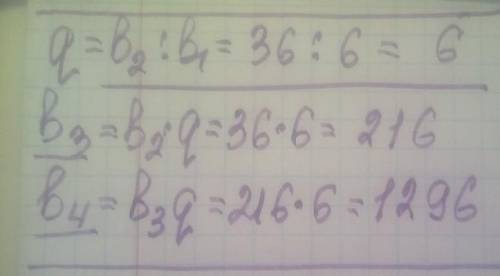 q = b₂ : b₁ = 36 : 6 = 6
b₃ = b₂ · q = 36 · 6 = 216
b₄ = b₃q = 216 · 6 = 1296